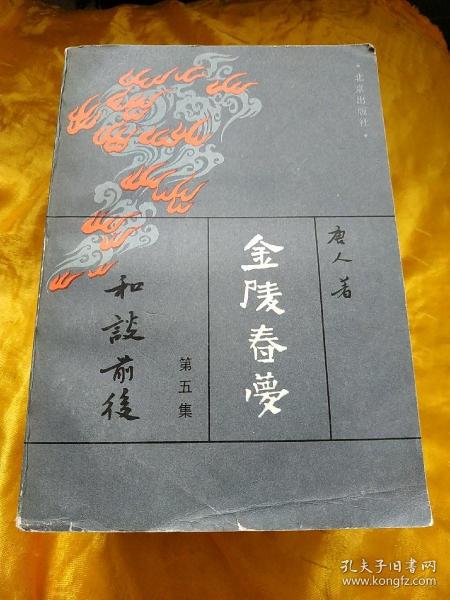 ·北京出版社·
唐人著
金陵春夢
第五集
和談前後
孔夫子旧书网
www.kongfz.com